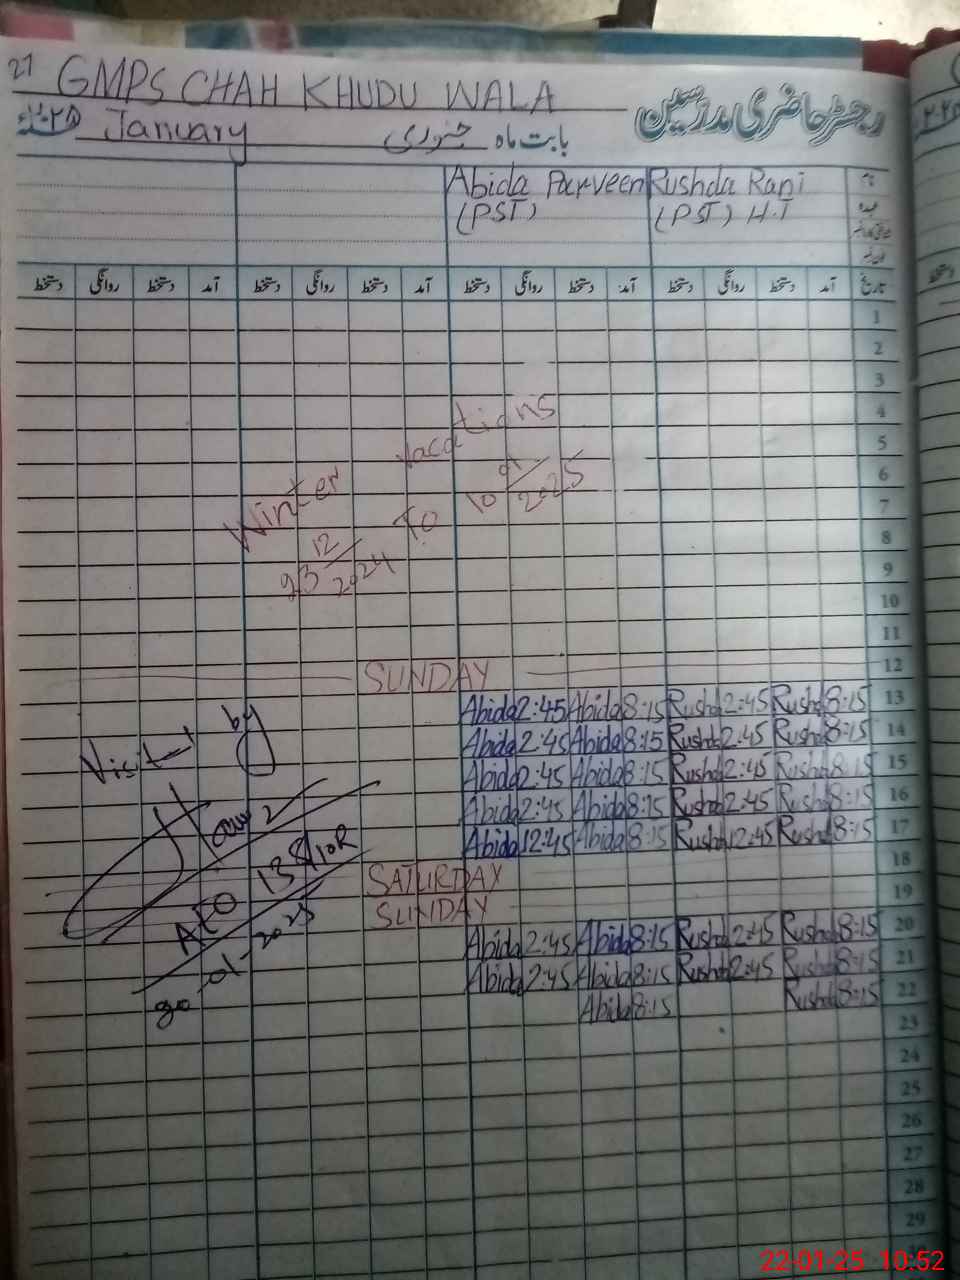 27 GMPS CHAH KHUDU WALA
رجسٹر حاضری مدرسین
January بابت ماہ جنوری ۲۰۲۵ء
Abida Parveen Rushda Rani نام
(PST) (PST) H.T عہدہ
تاریخ آمد دستخط روانگی دستخط آمد دستخط روانگی دستخط آمد دستخط روانگی دستخط آمد دستخط روانگی دستخط
1
2
3
4
5
6
7
8
9
10
11
Winter Vacations
23 12/2024 To 10 01/2025
SUNDAY 12
Abida 2:45 Abida 8:15 Rushda 2:45 Rushda 8:15 13
Abida 2:45 Abida 8:15 Rushda 2:45 Rushda 8:15 14
Abida 2:45 Abida 8:15 Rushda 2:45 Rushda 8:15 15
Abida 2:45 Abida 8:15 Rushda 2:45 Rushda 8:15 16
Abida 12:45 Abida 8:15 Rushda 12:45 Rushda 8:15 17
SATURDAY 18
SUNDAY 19
Abida 2:45 Abida 8:15 Rushda 2:45 Rushda 8:15 20
Abida 2:45 Abida 8:15 Rushda 2:45 Rushda 8:15 21
Abida 8:15 Rushda 8:15 22
23
24
25
26
27
28
29
Visited by
AEO 138/10R
20-01-2025
22-01-25 10:52